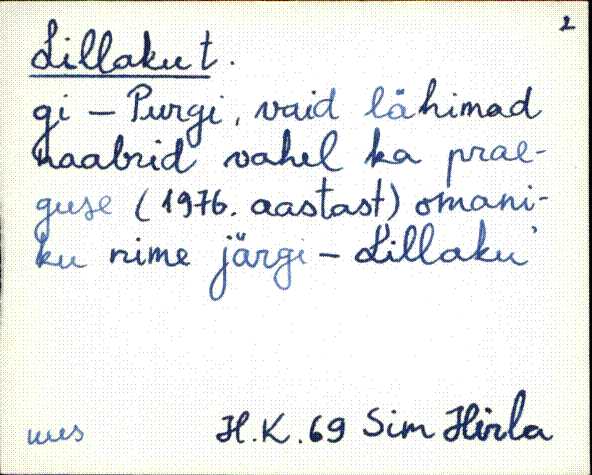 2
Lillaku t.
gi – Purgi, vaid lähimad
naabrid vahel ka prae-
guse (1976. aastast) omani-
ku nime järgi – Lillaku'
uus H.K. 69 Sim Hirla